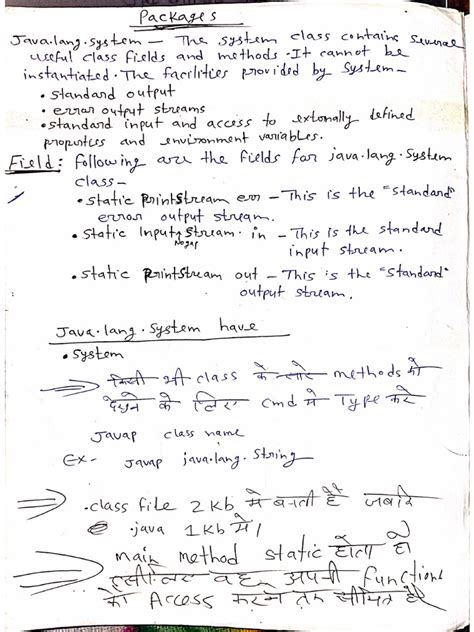 Packages
Java.lang.system — The system class contains several
useful class fields and methods. It cannot be
instantiated. The facilities provided by System —
• standard output
• error output streams
• standard input and access to extonally defined
properties and environment variables.
Field: following are the fields for java.lang.System
class —
• static PrintStream err — This is the "standard"
error output stream.
• static InputStream in — This is the standard
Nogap
input stream.
• static PrintStream out — This is the "standard"
output stream.
Java.lang.system have
• System
किसी भी class के सारे methods को
देखने के लिए cmd में Type करे
Javap class name
Ex- Javap java.lang.String
.class file 2kb में बनती है जबकि
.java 1kb में।
main method static होता है
इसीलिए वह अपनी functions
को Access करने तक सीमित है